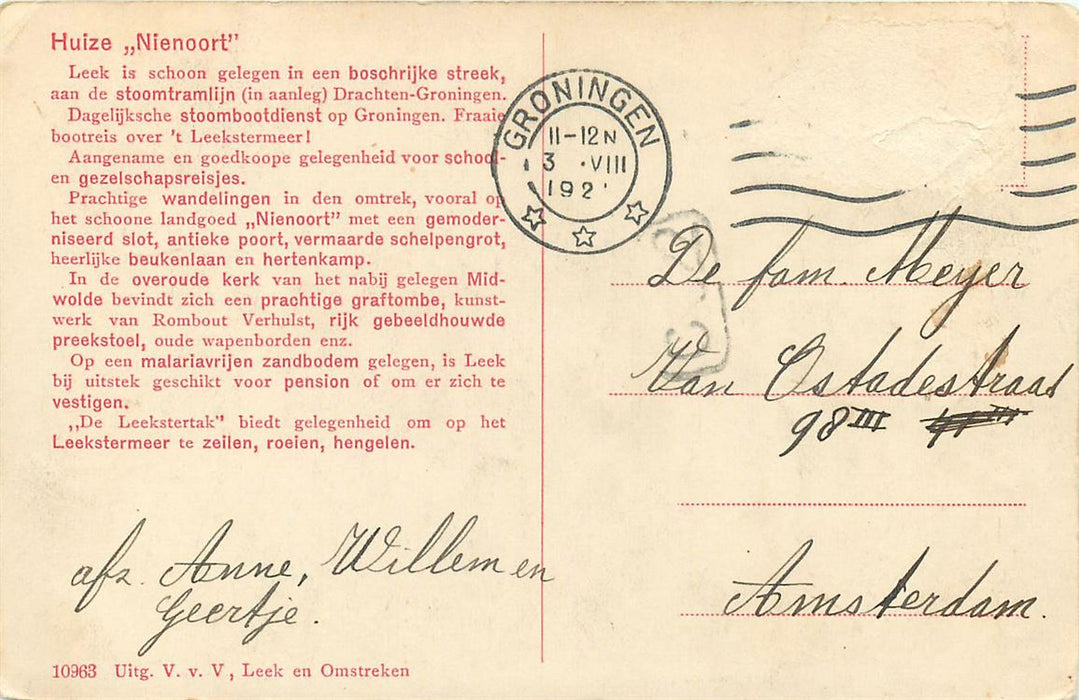 Huize „Nienoort”
Leek is schoon gelegen in een boschrijke streek,
aan de stoomtramlijn (in aanleg) Drachten-Groningen.
Dagelijksche stoombootdienst op Groningen. Fraaie
bootreis over 't Leekstermeer!
Aangename en goedkoope gelegenheid voor school-
en gezelschapsreisjes.
Prachtige wandelingen in den omtrek, vooral op
het schoone landgoed „Nienoort” met een gemoder-
niseerd slot, antieke poort, vermaarde schelpengrot,
heerlijke beukenlaan en hertenkamp.
In de overoude kerk van het nabij gelegen Mid-
wolde bevindt zich een prachtige graftombe, kunst-
werk van Rombout Verhulst, rijk gebeeldhouwde
preekstoel, oude wapenborden enz.
Op een malariavrijen zandbodem gelegen, is Leek
bij uitstek geschikt voor pension of om er zich te
vestigen.
„De Leekstertak” biedt gelegenheid om op het
Leekstermeer te zeilen, roeien, hengelen.
afz. Anne, Willem en
Geertje.
10963 Uitg. V. v. V, Leek en Omstreken
GRONINGEN
11-12N
3 .VIII
192
De fam. Meyer
Van Ostadestraat
98 III
Amsterdam.